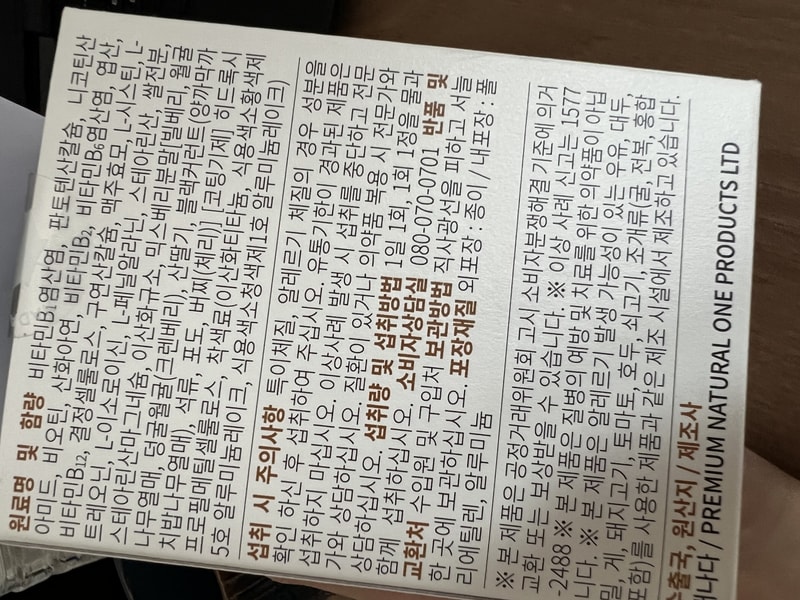 원료명 및 함량 비타민B₁염산염, 판토텐산칼슘, 니코틴산
아미드, 비오틴, 산화아연, 비타민B₂, 비타민B₆염산염, 엽산,
비타민B₁₂, 결정셀룰로스, 구연산칼슘, 맥주효모, L-시스틴, L-
트레오닌, L-이소로이신, L-페닐알라닌, 스테아린산, 쌀전분,
스테아린산마그네슘, 이산화규소, 믹스베리분말[빌베리, 월귤
나무열매, 덩굴월귤(크렌베리), 산딸기, 블랙커런트(양까막까
치밥나무열매), 석류, 포도, 버찌(체리)] [코팅기제] 히드록시
프로필메틸셀룰로스, 착색료(이산화티타늄, 식용색소황색제
5호 알루미늄레이크, 식용색소청색제1호 알루미늄레이크)
섭취 시 주의사항 특이체질, 알레르기 체질의 경우 성분을
확인 하신 후 섭취하여 주십시오. 유통기한이 경과된 제품은
섭취하지 마십시오. 이상사례 발생 시 섭취를 중단하고 전문
가와 상담하십시오. 질환이 있거나 의약품 복용 시 전문가와
상담하십시오. 섭취량 및 섭취방법 1일 1회, 1회 1정을 물과
함께 섭취하십시오. 소비자상담실 080-070-0701 반품 및
교환처 수입원 및 구입처 보관방법 직사광선을 피하고 서늘
한 곳에 보관하십시오. 포장재질 외포장 : 종이 / 내포장 : 폴
리에틸렌, 알루미늄
※ 본 제품은 공정거래위원회 고시 소비자분쟁해결 기준에 의거
교환 또는 보상받을 수 있습니다. ※ 이상 사례 신고는 1577
-2488 ※ 본 제품은 질병의 예방 및 치료를 위한 의약품이 아닙
니다. ※ 본 제품은 알레르기 발생 가능성이 있는 우유, 대두,
밀, 게, 돼지고기, 토마토, 호두, 쇠고기, 조개류(굴, 전복, 홍합
포함)를 사용한 제품과 같은 제조 시설에서 제조하고 있습니다.
수출국, 원산지 / 제조사
캐나다 / PREMIUM NATURAL ONE PRODUCTS LTD